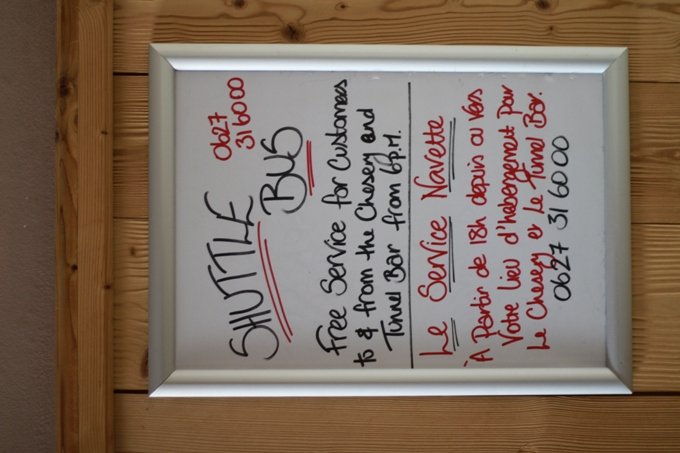 SHUTTLE
BUS
0627
316000
Free Service for Customers
to & from the Chesery and
Tunnel Bar from 6p.M.
Le Service Navette
À Partir de 18h depuis ou vers
Votre Lieu d'hebergement pour
Le Chesery et Le Tunnel Bar.
0627 316000